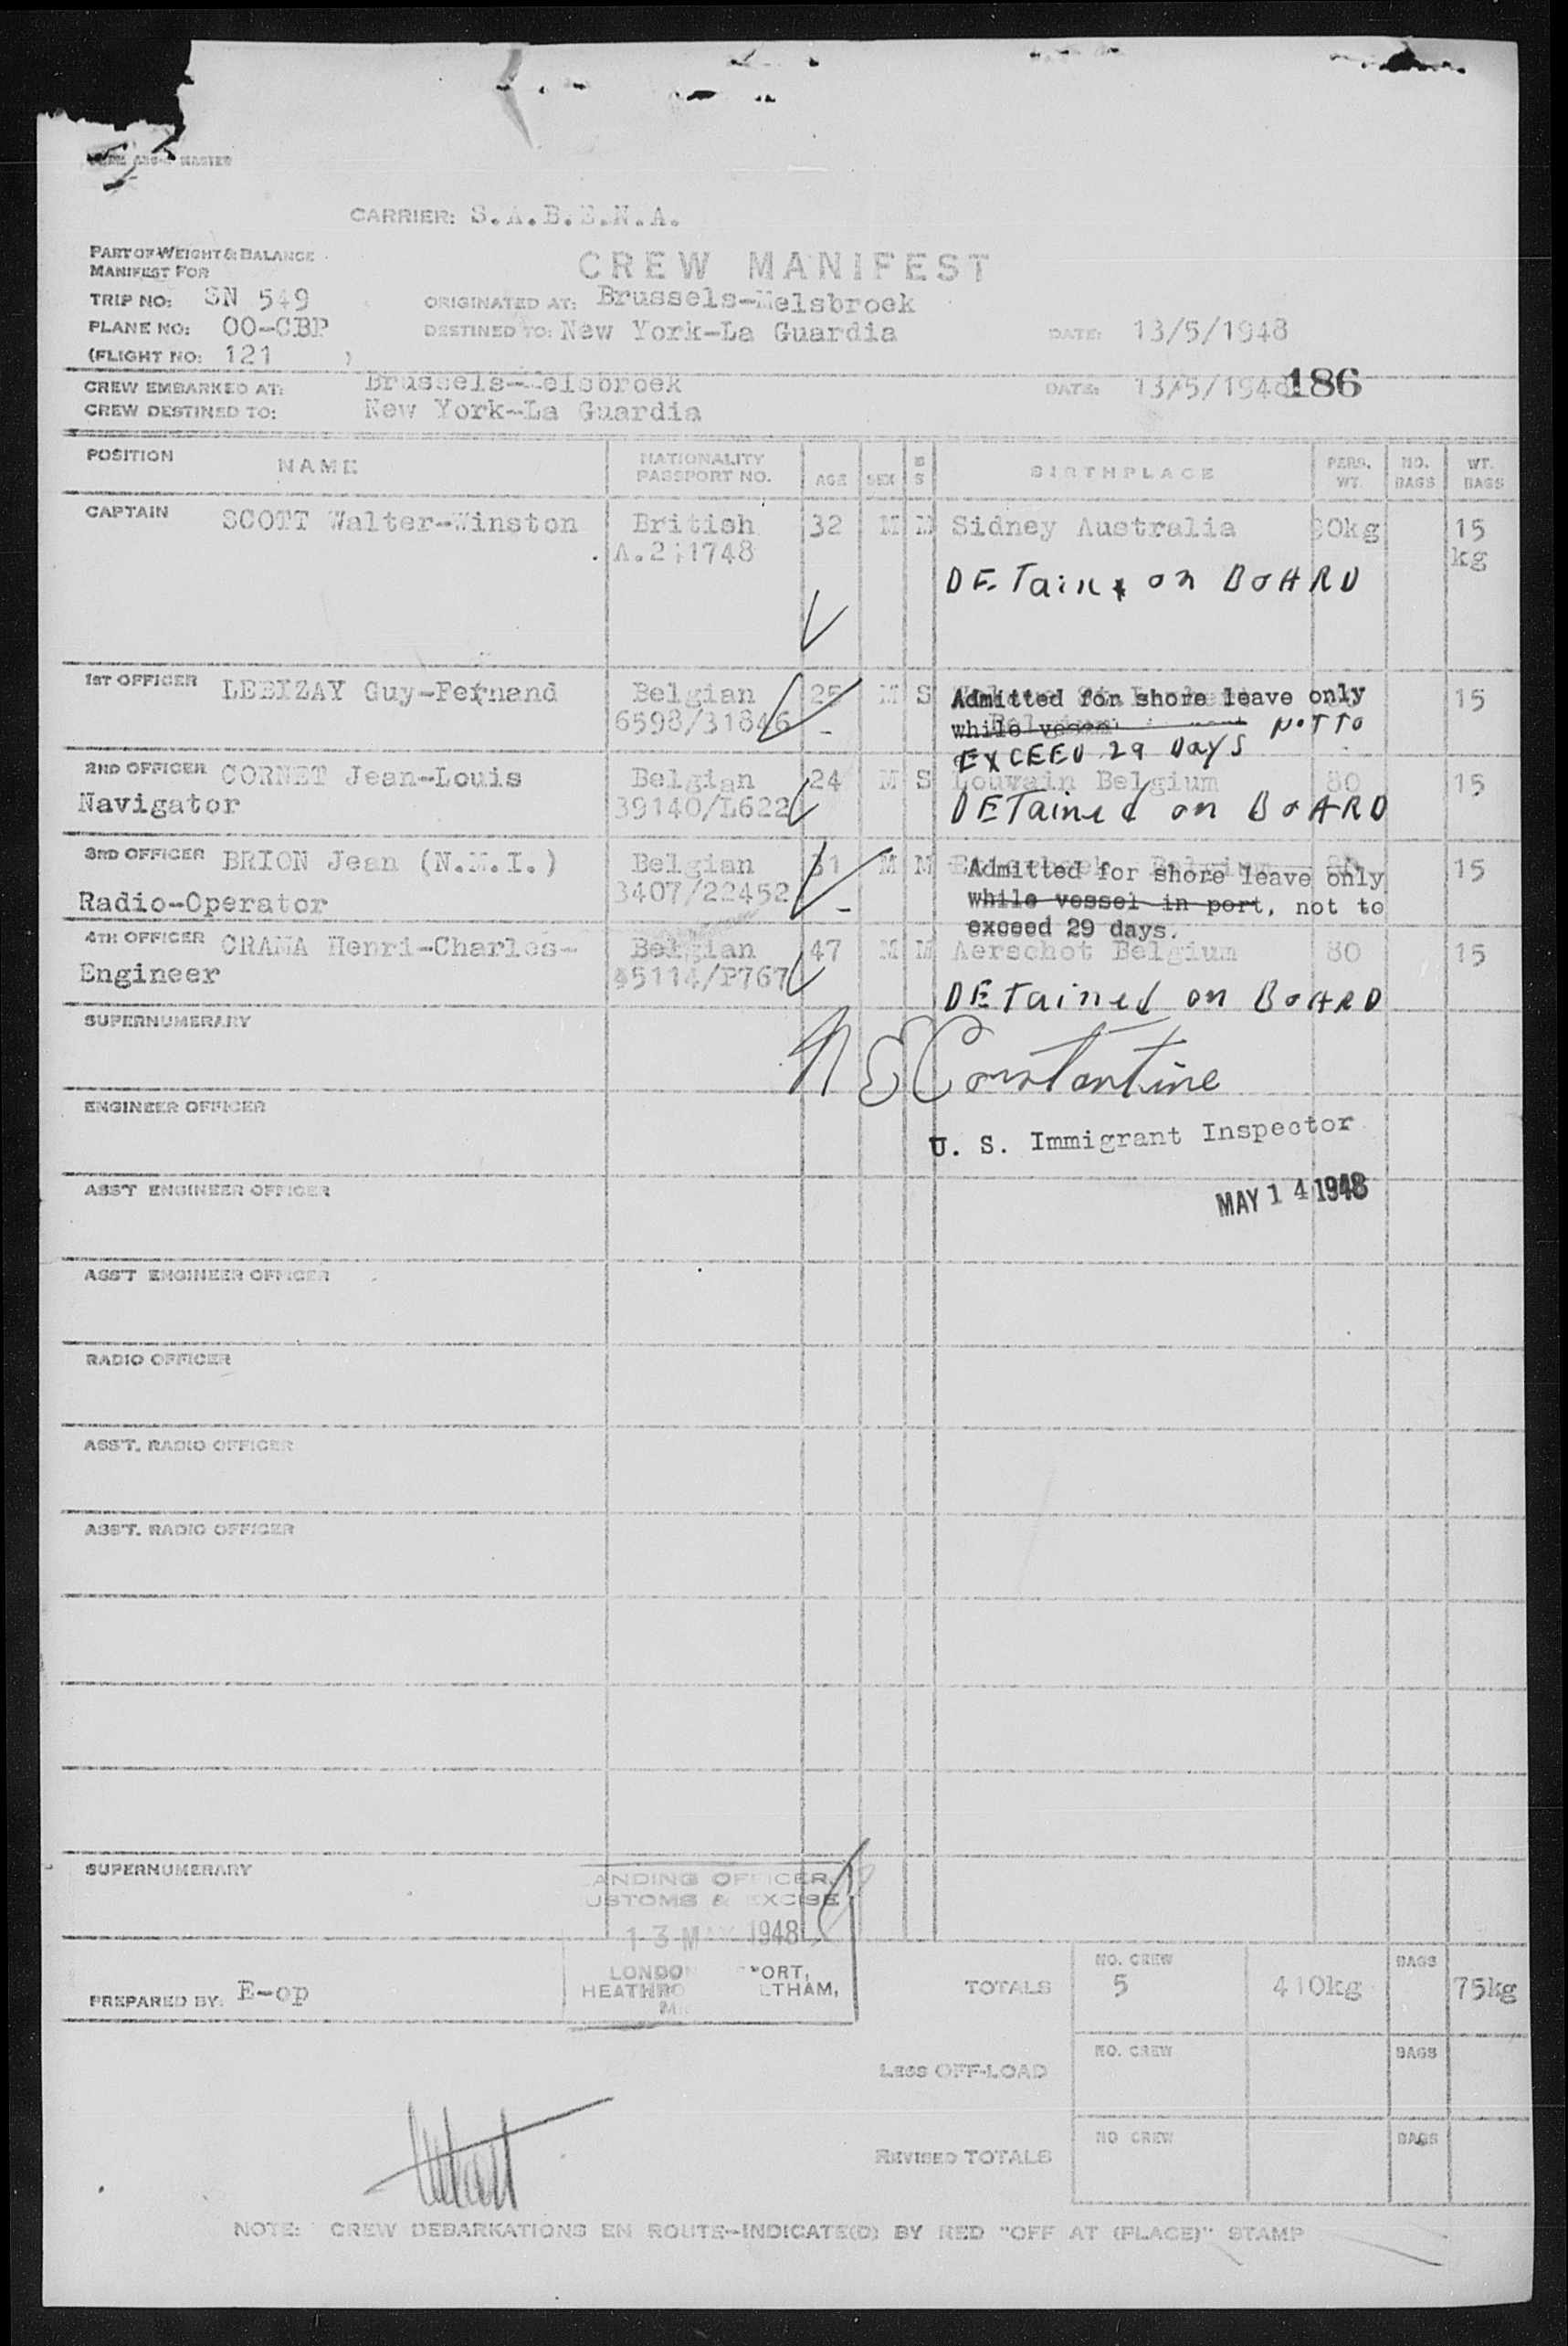 MASTER
CARRIER: S.A.B.E.N.A.
PART OF WEIGHT & BALANCE
MANIFEST FOR
CREW MANIFEST
TRIP NO: SN 549
ORIGINATED AT: Brussels-Melsbroek
PLANE NO: OO-CBP
DESTINED TO: New York-La Guardia
DATE: 13/5/1948
(FLIGHT NO: 121 )
CREW EMBARKED AT: Brussels-Melsbroek
DATE: 13/5/1948
186
CREW DESTINED TO: New York-La Guardia
POSITION NAME NATIONALITY PASSPORT NO. AGE SEX S BIRTHPLACE PERS. WT. NO. BAGS WT. BAGS
CAPTAIN SCOTT Walter-Winston British 32 M M Sidney Australia 15
A.211748 kg
DETain on BOARD
1ST OFFICER LEBIZAY Guy-Fernand Belgian 25 M S 15
6598/31846
Admitted for shore leave only
while vessel NOT TO
EXCEED 29 DAYS
2ND OFFICER CORNET Jean-Louis Belgian 24 M S Louvain Belgium 80 15
Navigator 39140/L622
DETained on BOARD
3RD OFFICER BRION Jean (N.M.I.) Belgian 31 M M Belgium 80 15
Radio-Operator 3407/22452
Admitted for shore leave only
while vessel in port, not to
exceed 29 days.
4TH OFFICER CRAMA Henri-Charles- Belgian 47 M M Aerschot Belgium 80 15
Engineer 45114/P767
DETained on BOARD
SUPERNUMERARY
N E Constantine
ENGINEER OFFICER
U. S. Immigrant Inspector
ASS'T ENGINEER OFFICER
MAY 14 1948
ASS'T ENGINEER OFFICER
RADIO OFFICER
ASS'T. RADIO OFFICER
ASS'T. RADIO OFFICER
SUPERNUMERARY
LANDING OFFICER,
CUSTOMS & EXCISE
13 MAY 1948
LONDON PORT,
HEATHRO LTHAM,
PREPARED BY: E-op
TOTALS NO. CREW 5 410kg BAGS 75kg
LESS OFF-LOAD NO. CREW BAGS
REVISED TOTALS NO CREW BAGS
NOTE: CREW DEBARKATIONS EN ROUTE-INDICATE(D) BY RED "OFF AT (PLACE)" STAMP